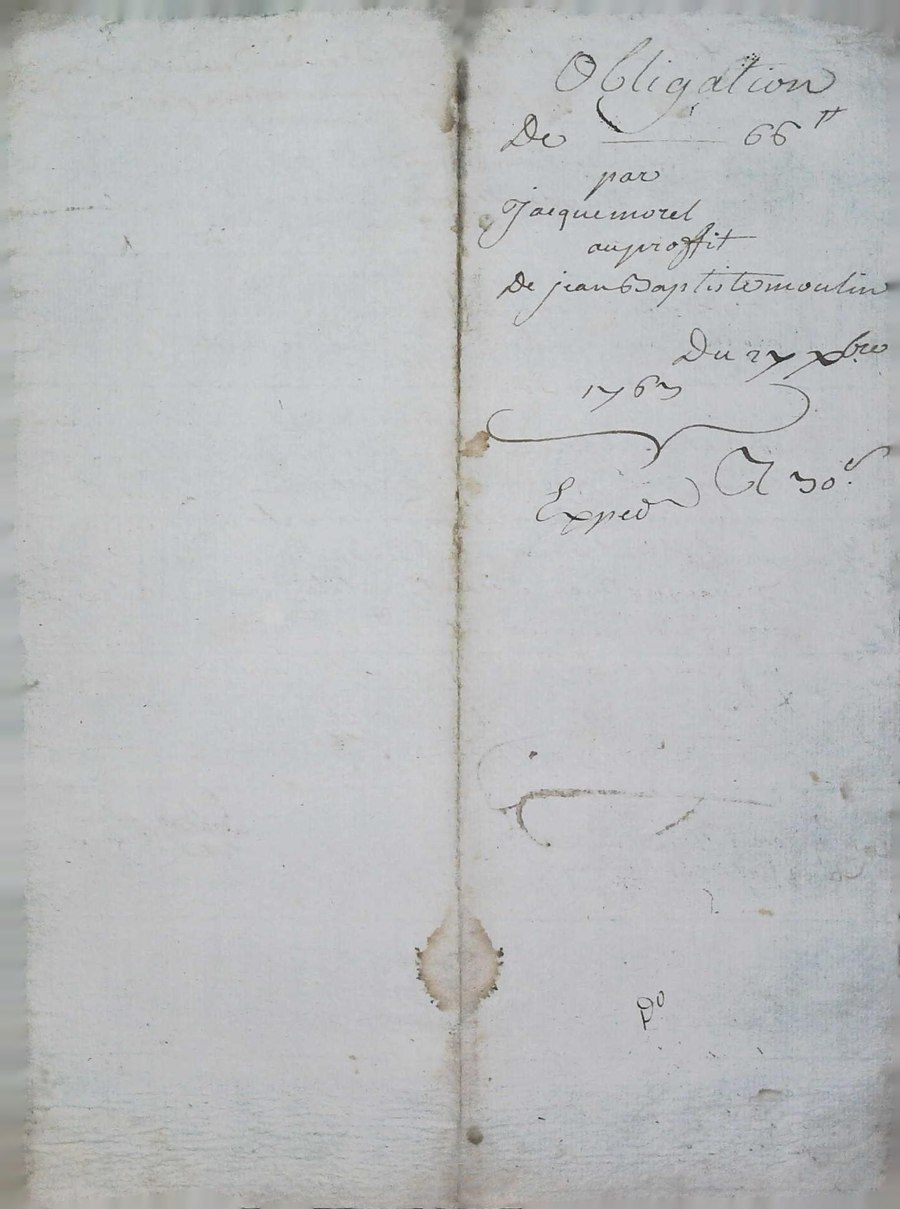 Obligation
De 66 tt
par
Jacque morel
au proffit
De jean Baptiste moulin
Du 27 xbre
1763
Expedié
30 s.